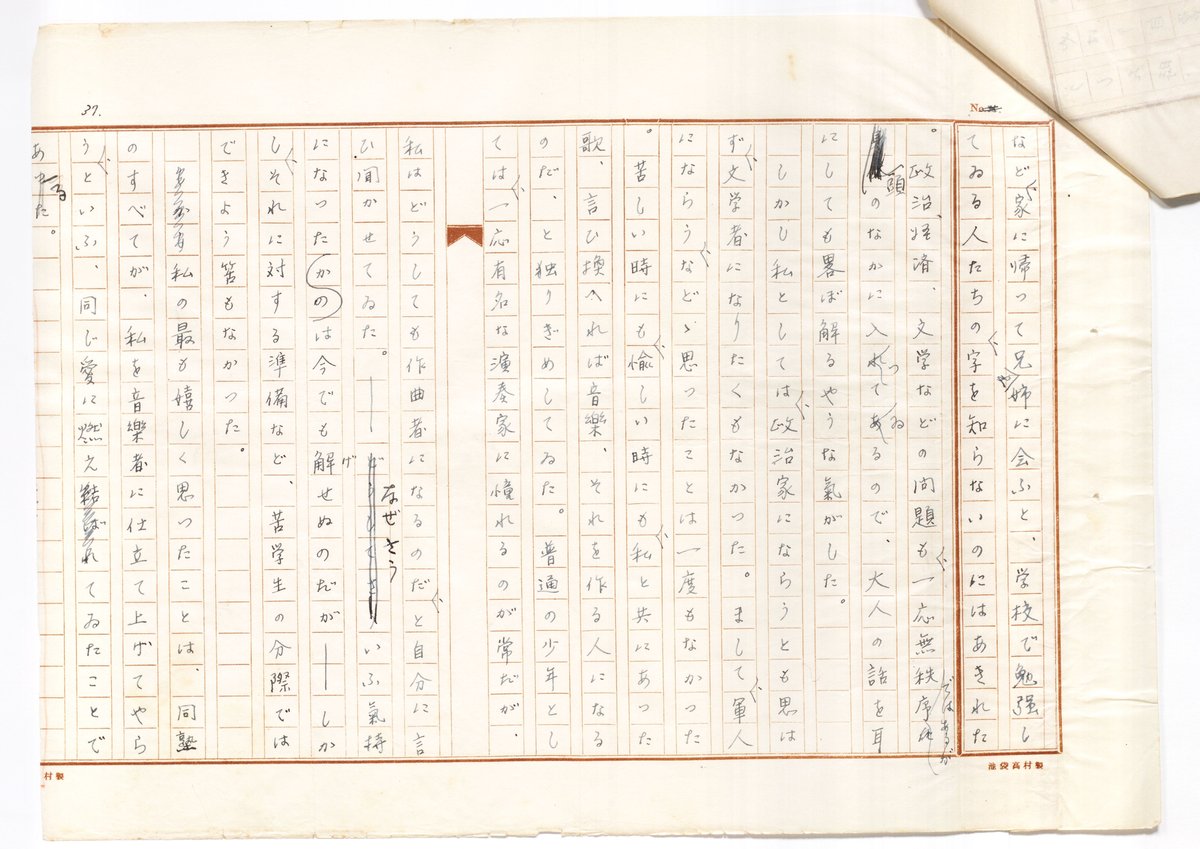 37.
No.
など家に帰って兄姉に会ふと、学校で勉强し
てゐる人たちの字を知らないのにはあきれた
。政治、経済、文学などの問題も一応無秩序ではあるが
頭のなかに入ってゐるので、大人の話を耳
にしても畧ば解るやうな氣がした。
しかし私としては政治家にならうとも思は
ず文学者になりたくもなかった。まして軍人
にならうなどゝ思ったことは一度もなかった
。苦しい時にも愉しい時にも私と共にあった
歌、言ひ換へれば音樂、それを作る人になる
のだ、と独りぎめしてゐた。普通の少年とし
ては一応有名な演奏家に憧れるのが常だが、
私はどうしても作曲者になるのだと自分に言
ひ聞かせてゐた。――なぜさういふ氣持
になったのかは今でも解せぬのだが――しか
げ
しそれに対する準備など、苦学生の分際では
できよう筈もなかった。
私の最も嬉しく思ったことは、同塾
のすべてが、私を音樂者に仕立て上げてやら
うといふ、同じ愛に燃えてゐたことで
あった。
る
池袋高村製
村製